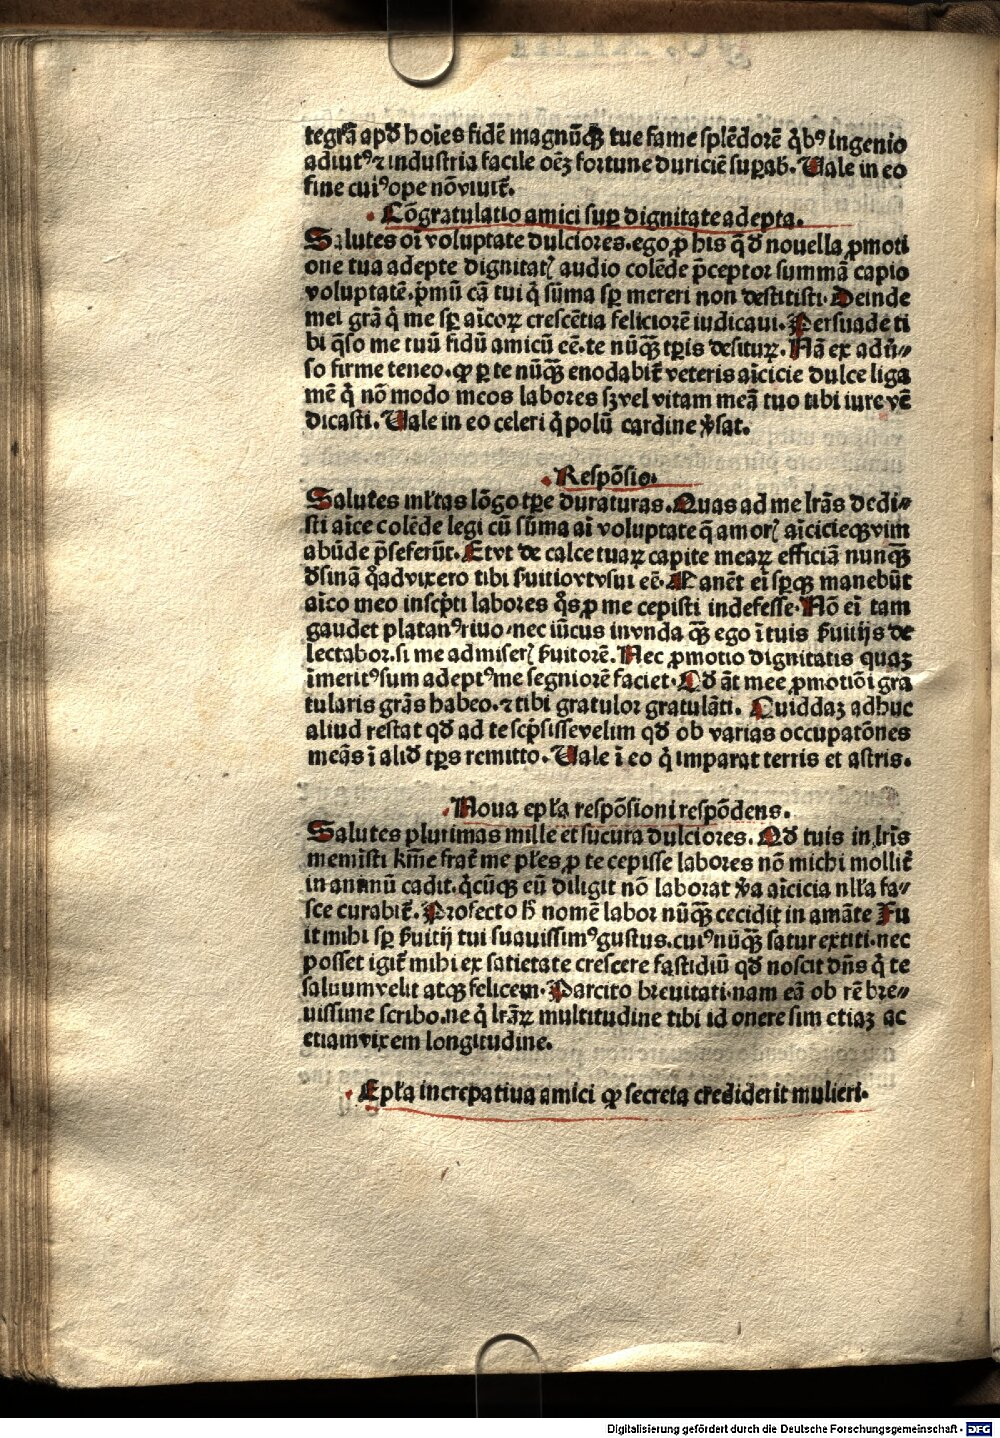 tegrã apđ hoīes fidē magnūq̧ tue fame splēdorē q̇bꝰ ingenio
adiutꝰ ⁊ industria facile oēꝫ fortune duriciē suꝑab. Uale in eo
fine cuiꝰ ope nō viuit̃.
Cōgratulatio amici suꝑ dignitate adepta.
Salutes oī voluptate dulciores. ego ꝓ his q̄ đ nouella ꝓmoti
one tua adepte dignitatꝭ audio colēde p̄ceptor summā capio
voluptatē. p̄mū cā tui q̇ sūma sꝑ mereri non destitisti. Deinde
mei grã q̇ me sꝑ aīcoꝝ crescētia feliciorē iudicaui. Persuade ti
bi q̃so me tuū fidū amicū eē. te nūq̄ꝫ tꝑis desituꝝ. Nā ex
so firme teneo. ꝙ ꝑ te nūq̄ꝫ enodabit̃ veteris aīcicie dulce liga
mē q̇ nō modo meos labores sꝫ vel vitam meā tuo tibi iure vē
dicasti. Uale in eo celeri q̇ polū cardine ꝟsat.
Respōsio.
Salutes ml̃tas lōgo tꝑe duraturas. Quas ad me lr̃as dedi⸗
sti aīce colēde legi cū sūma aī voluptate q̄ amorꝭ aīcicieq̧ vim
abūde p̄seferūt. Et vt de calce tuaꝝ capite meaꝝ efficiā nunq̄ꝫ
đsinā q̇ad vixero tibi suitio vt vsui eē. Manēt eī sꝑq̧ manebūt
aīco meo inscṗti labores q̇s ꝓ me cepisti indefesse. Nō eī tam
gaudet platanꝰ riuo nec iūcus in vnda q̄ꝫ ego ī tuis ẜuitijs de
lectabor. si me admiserꝭ ẜuitorē. Nec ꝓmotio dignitatis quaꝫ
īmeritꝰ sum adeptꝰ me segniorē faciet. Qđ āt mee ꝓmotiōi gra
tularis grãs habeo. ⁊ tibi gratulor gratulāti. Quiddaꝫ adhuc
aliud restat qđ ad te scṗsisse velim qđ ob varias occupatōnes
meās ī aliđ tꝑs remitto. Uale ī eo q̇ imparat terris et astris.
Noua epl̃a respōsioni respōdens.
Salutes plurimas mille et sucura dulciores. Qđ tuis in lr̃is
meministi kr̄me frat̃ me pl̃es ꝓ te cepisse labores nō michi mollit̃
in animū cadit. q̇cūq̧ eū diligit nō laborat ꝟa aīcicia nl̃la fa⸗
sce curabit̃. Profecto h̄ nomē labor nūq̄ꝫ cecidit in amāte Fu
it mihi sꝑ ẜuitij tui suauissimꝰ gustus. cuiꝰ nūq̄ꝫ satur extiti. nec
posset igit̃ mihi ex satietate crescere fastidiū qđ noscit dn̄s q̇ te
saluum velit atq̧ felicem. Parcito breuitati. nam eā ob rē bre⸗
uissime scribo. ne q̇ lr̃aꝝ multitudine tibi id onere sim etiaꝫ ac
etiam vixem longitudine.
Epl̃a increpatiua amici ꝙ secreta crediderit mulieri.
Digitalisierung gefördert durch die Deutsche Forschungsgemeinschaft - DFG